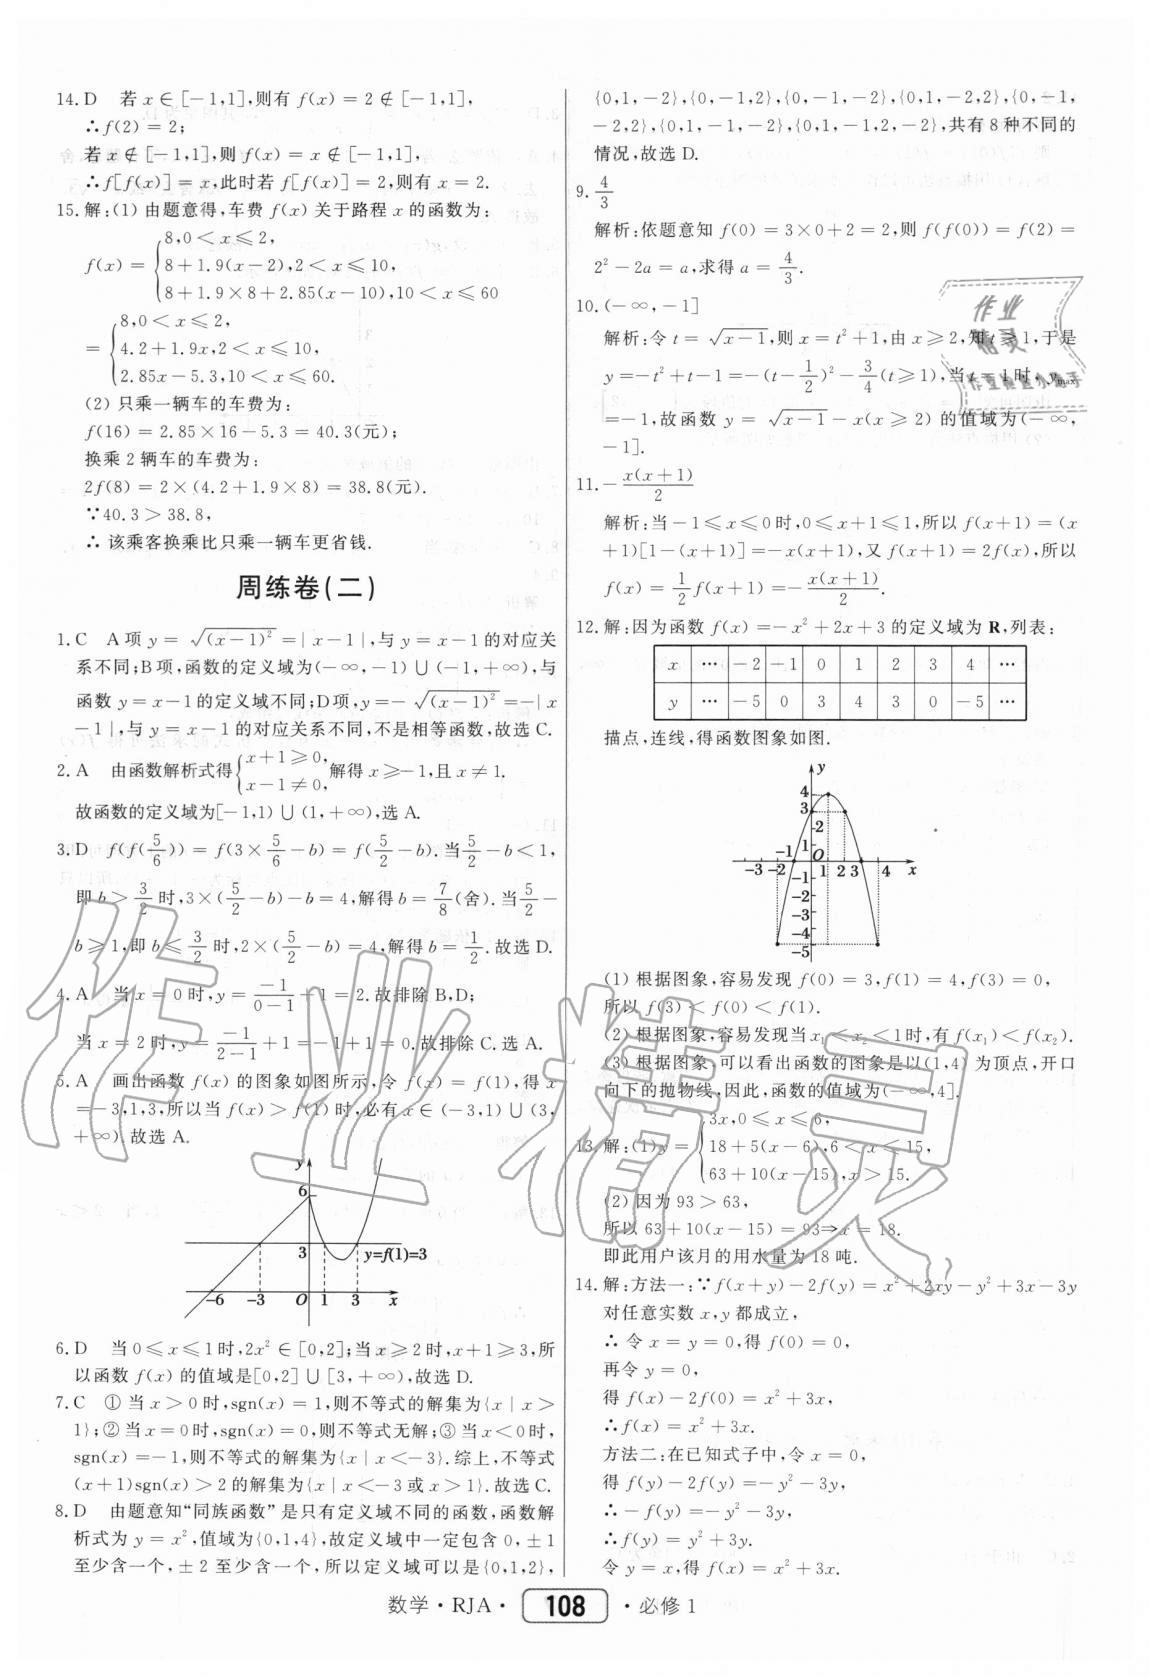 14.D 若 x∈[-1,1],则有 f(x)=2∉[-1,1],
∴f(2)=2;
若 x∉[-1,1],则 f(x)=x∉[-1,1],
∴f[f(x)]=x,此时若 f[f(x)]=2,则有 x=2.
15.解:(1)由题意得,车费 f(x)关于路程 x 的函数为:
f(x)={8,0<x≤2,
8+1.9(x-2),2<x≤10,
8+1.9×8+2.85(x-10),10<x≤60
={8,0<x≤2,
4.2+1.9x,2<x≤10,
2.85x-5.3,10<x≤60.
(2)只乘一辆车的车费为:
f(16)=2.85×16-5.3=40.3(元);
换乘 2 辆车的车费为:
2f(8)=2×(4.2+1.9×8)=38.8(元).
∵40.3>38.8,
∴该乘客换乘比只乘一辆车更省钱.
周练卷(二)
1.C A 项 y=√(x-1)²=|x-1|,与 y=x-1 的对应关
系不同;B 项,函数的定义域为(-∞,-1)∪(-1,+∞),与
函数 y=x-1 的定义域不同;D 项,y=-√(x-1)²=-|x
-1|,与 y=x-1 的对应关系不同,不是相等函数,故选 C.
2.A 由函数解析式得{x+1≥0,
x-1≠0, 解得 x≥-1,且 x≠1.
故函数的定义域为[-1,1)∪(1,+∞),选 A.
3.D f(f(5/6))=f(3×5/6-b)=f(5/2-b).当5/2-b<1,
即 b>3/2时,3×(5/2-b)-b=4,解得 b=7/8(舍).当5/2-
b≥1,即 b≤3/2时,2×(5/2-b)=4,解得 b=1/2.故选 D.
4.A 当 x=0 时,y=-1/(0-1)+1=2.故排除 B,D;
当 x=2 时,y=-1/(2-1)+1=-1+1=0.故排除 C.选 A.
5.A 画出函数 f(x)的图象如图所示,令 f(x)=f(1),得 x
=-3,1,3,所以当 f(x)>f(1)时,必有 x∈(-3,1)∪(3,
+∞).故选 A.
y
6
3
y=f(1)=3
-6 -3 O 1 3 x
6.D 当 0≤x≤1 时,2x²∈[0,2];当 x≥2 时,x+1≥3,所
以函数 f(x)的值域是[0,2]∪[3,+∞),故选 D.
7.C ①当 x>0 时,sgn(x)=1,则不等式的解集为{x|x>
1};②当 x=0 时,sgn(x)=0,则不等式无解;③当 x<0 时,
sgn(x)=-1,则不等式的解集为{x|x<-3}.综上,不等式
(x+1)sgn(x)>2 的解集为{x|x<-3 或 x>1}.故选 C.
8.D 由题意知“同族函数”是只有定义域不同的函数,函数解
析式为 y=x²,值域为{0,1,4},故定义域中一定包含 0,±1
至少含一个,±2 至少含一个,所以定义域可以是{0,1,2},
{0,1,-2},{0,-1,2},{0,-1,-2},{0,1,-2,2},{0,-1,
-2,2},{0,1,-1,-2},{0,1,-1,2,-2},共有 8 种不同的
情况,故选 D.
9.4/3
解析:依题意知 f(0)=3×0+2=2,则 f(f(0))=f(2)=
2²-2a=a,求得 a=4/3.
10.(-∞,-1]
解析:令 t=√x-1,则 x=t²+1,由 x≥2,知 t≥1,于是
y=-t²+t-1=-(t-1/2)²-3/4(t≥1),当 t=1 时,ymax
=-1,故函数 y=√x-1-x(x≥2)的值域为(-∞,
-1].
11.-x(x+1)/2
解析:当-1≤x≤0 时,0≤x+1≤1,所以 f(x+1)=(x
+1)[1-(x+1)]=-x(x+1),又 f(x+1)=2f(x),所以
f(x)=1/2f(x+1)=-x(x+1)/2.
12.解:因为函数 f(x)=-x²+2x+3 的定义域为 R,列表:
x … -2 -1 0 1 2 3 4 …
y … -5 0 3 4 3 0 -5 …
描点,连线,得函数图象如图.
y
4
3
2
1
-3 -2 -1 O 1 2 3 4 x
-1
-2
-3
-4
-5
(1)根据图象,容易发现 f(0)=3,f(1)=4,f(3)=0,
所以 f(3)<f(0)<f(1).
(2)根据图象,容易发现当 x₁<x₂<1 时,有 f(x₁)<f(x₂).
(3)根据图象,可以看出函数的图象是以(1,4)为顶点,开口
向下的抛物线,因此,函数的值域为(-∞,4].
13.解:(1)y={3x,0≤x≤6,
18+5(x-6),6<x≤15,
63+10(x-15),x>15.
(2)因为 93>63,
所以 63+10(x-15)=93⇒x=18.
即此用户该月的用水量为 18 吨.
14.解:方法一:∵f(x+y)-2f(y)=x²+2xy-y²+3x-3y
对任意实数 x,y 都成立,
∴令 x=y=0,得 f(0)=0,
再令 y=0,
得 f(x)-2f(0)=x²+3x,
∴f(x)=x²+3x.
方法二:在已知式子中,令 x=0,
得 f(y)-2f(y)=-y²-3y,
∴-f(y)=-y²-3y,
∴f(y)=y²+3y.
令 y=x,得 f(x)=x²+3x.
数学·RJA· 108 ·必修 1
作业精灵
作业
精灵